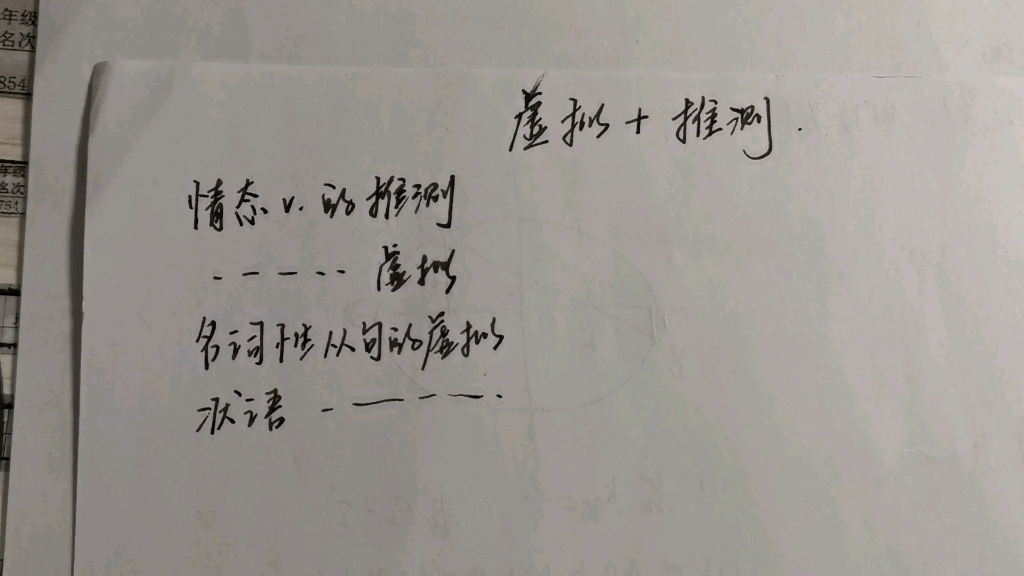 年级
名次
854
年级
名次
754
虚拟 + 推测.
情态v.的推测
- - - - - 虚拟
名词性从句的虚拟
状语 - — - — .